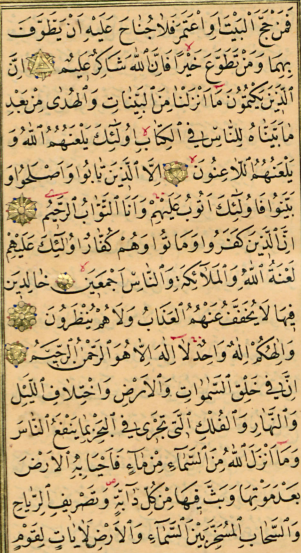 فَمَنْ حَجَّ الْبَيْتَ اَوِ اعْتَمَرَ فَلَا جُنَاحَ عَلَيْهِ اَنْ يَطَّوَّفَ
بِهِمَا وَمَنْ تَطَوَّعَ خَيْرًا فَاِنَّ اللّٰهَ شَاكِرٌ عَلِيمٌ اِنَّ
الَّذِينَ يَكْتُمُونَ مَا اَنْزَلْنَا مِنَ الْبَيِّنَاتِ وَالْهُدٰى مِنْ بَعْدِ
مَا بَيَّنَّاهُ لِلنَّاسِ فِي الْكِتَابِ اُولٰئِكَ يَلْعَنُهُمُ اللّٰهُ وَ
يَلْعَنُهُمُ اللَّاعِنُونَ اِلَّا الَّذِينَ تَابُوا وَاَصْلَحُوا وَ
بَيَّنُوا فَاُولٰئِكَ اَتُوبُ عَلَيْهِمْ وَاَنَا التَّوَّابُ الرَّحِيمُ
اِنَّ الَّذِينَ كَفَرُوا وَمَاتُوا وَهُمْ كُفَّارٌ اُولٰئِكَ عَلَيْهِمْ
لَعْنَةُ اللّٰهِ وَالْمَلٰئِكَةِ وَالنَّاسِ اَجْمَعِينَ خَالِدِينَ
فِيهَا لَا يُخَفَّفُ عَنْهُمُ الْعَذَابُ وَلَا هُمْ يُنْظَرُونَ
وَاِلٰهُكُمْ اِلٰهٌ وَاحِدٌ لَا اِلٰهَ اِلَّا هُوَ الرَّحْمٰنُ الرَّحِيمُ
اِنَّ فِي خَلْقِ السَّمٰوَاتِ وَالْاَرْضِ وَاخْتِلَافِ اللَّيْلِ
وَالنَّهَارِ وَالْفُلْكِ الَّتِي تَجْرِي فِي الْبَحْرِ بِمَا يَنْفَعُ النَّاسَ
وَمَا اَنْزَلَ اللّٰهُ مِنَ السَّمَاءِ مِنْ مَاءٍ فَاَحْيَا بِهِ الْاَرْضَ
بَعْدَ مَوْتِهَا وَبَثَّ فِيهَا مِنْ كُلِّ دَابَّةٍ وَتَصْرِيفِ الرِّيَاحِ
وَالسَّحَابِ الْمُسَخَّرِ بَيْنَ السَّمَاءِ وَالْاَرْضِ لَاٰيَاتٍ لِقَوْمٍ